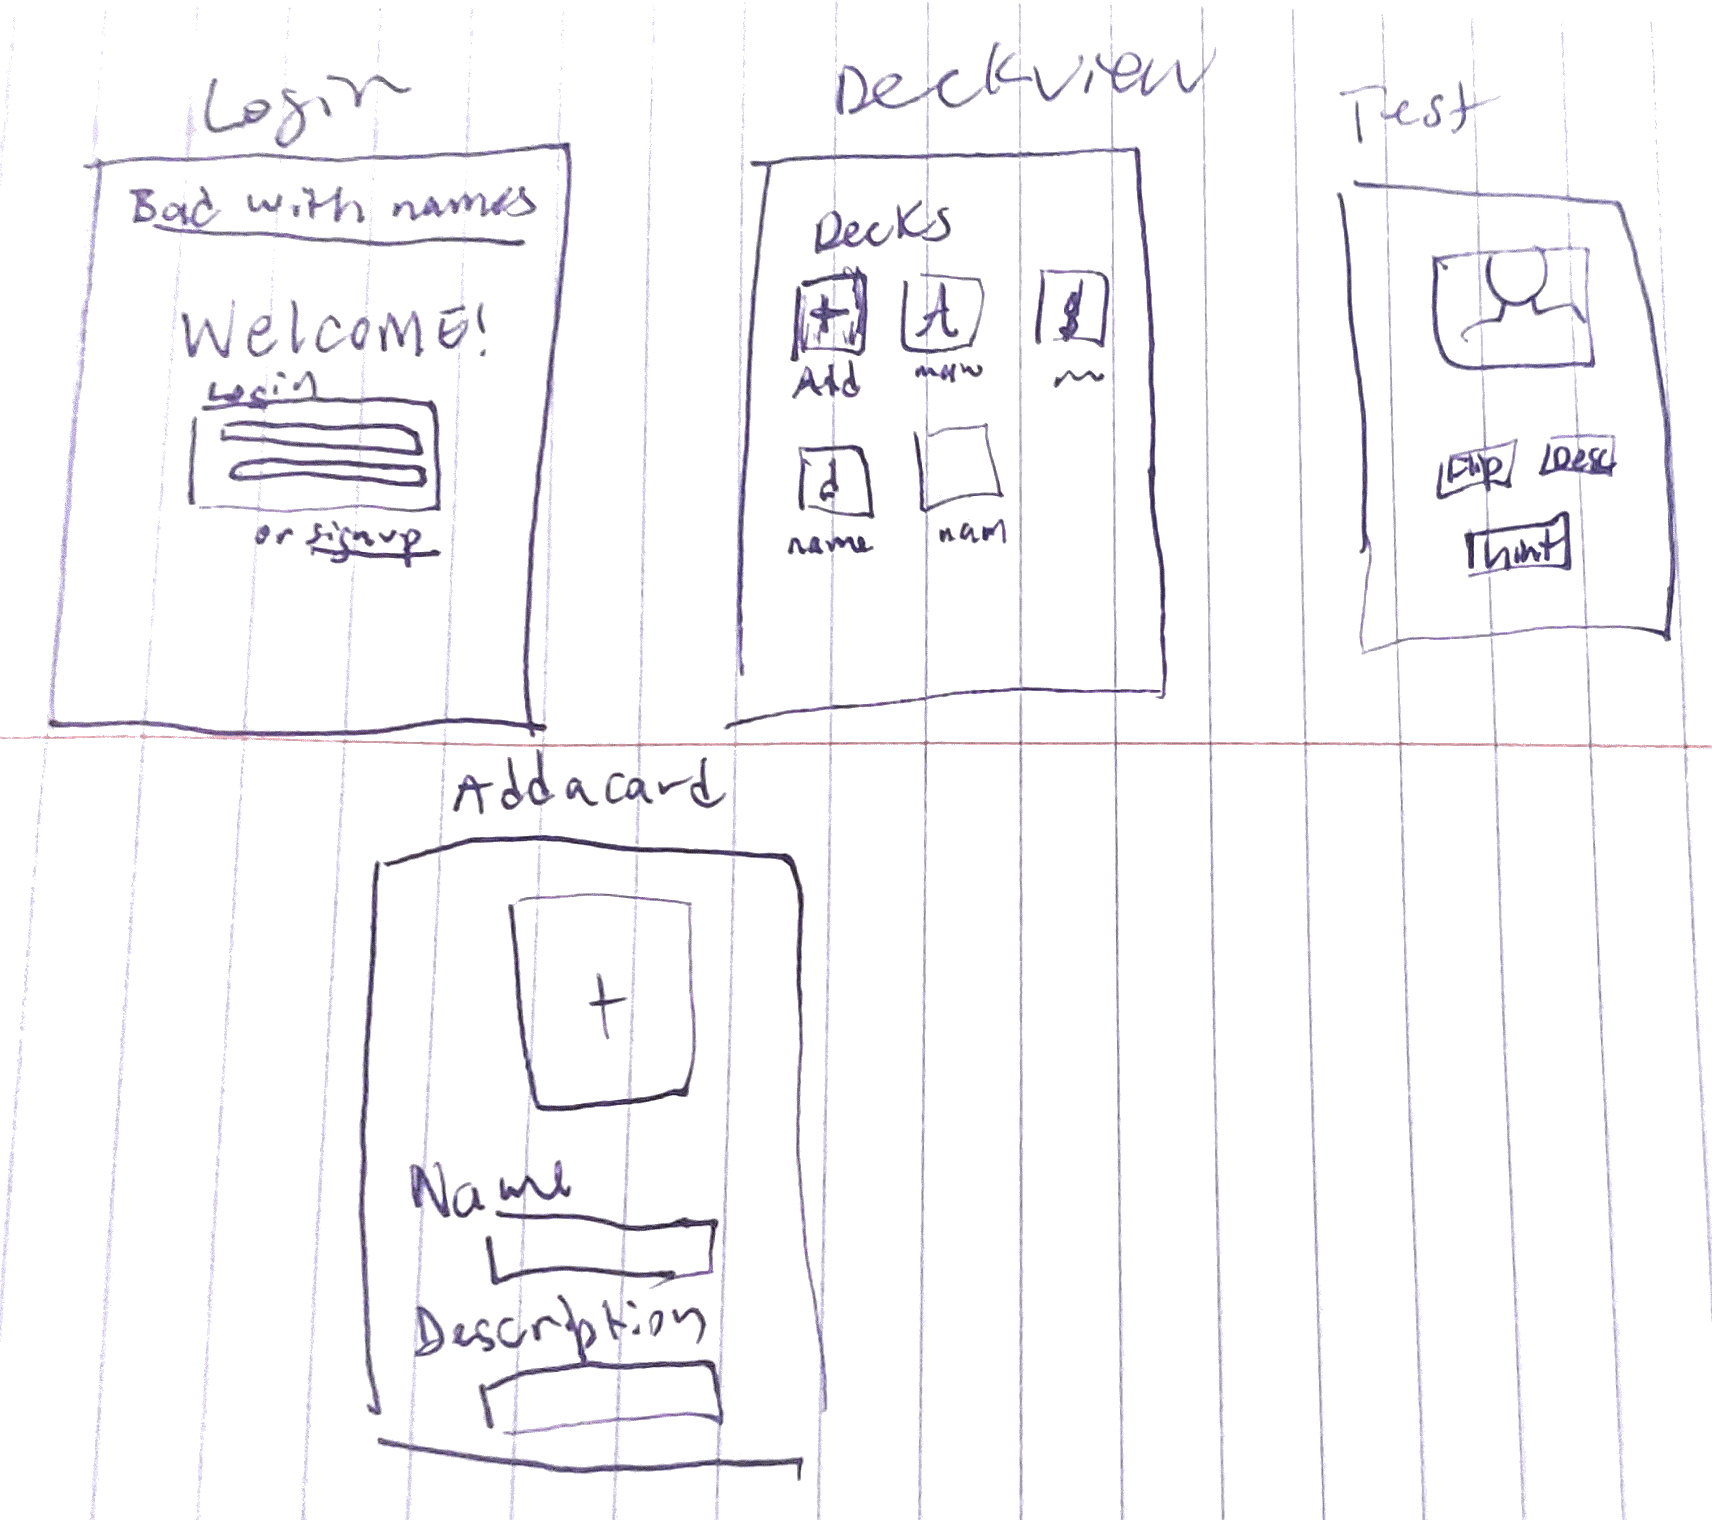 Login
Bad with names
Welcome!
Login
or signup
Deckview
Decks
+ A
Add
d
name nam
Test
Flip Desc
hint
Add a card
+
Name
Description